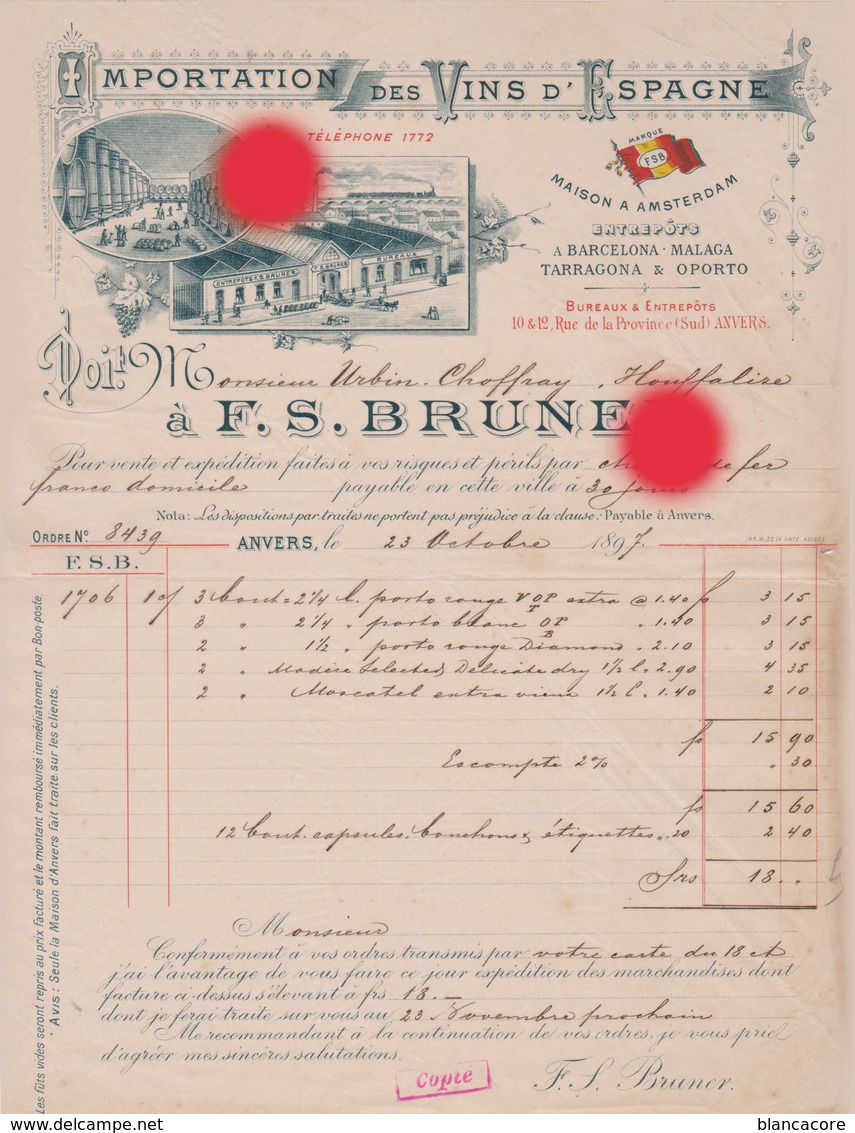 IMPORTATION DES VINS D'ESPAGNE
TÉLÉPHONE 1772
MARQUE
FSB
MAISON A AMSTERDAM
ENTREPÔTS
A BARCELONA · MALAGA
TARRAGONA & OPORTO
ENTREPÔTS F.S. BRUNER
F.S. BRUNER
BUREAUX
BUREAUX & ENTREPÔTS
10 & 12, Rue de la Province (Sud) ANVERS.
Doit M onsieur Urbin-Choffray, Houffalize
à F. S. BRUNE
Pour vente et expédition faites à vos risques et périls par de fer
franco domicile payable en cette ville à 30 jours
Nota: Les dispositions par traites ne portent pas préjudice à la clause: Payable à Anvers.
ORDRE No. 8439 ANVERS, le 23 Octobre 1897.
IMP. M. DE LA HAYE. ANVERS
F. S. B.
1706 1 c/ 3 bout = 2 1/4 l. porto rouge VOP extra @ 1.40 fs 3 15
3 " 2 1/4 " porto blanc OP " 1.40 3 15
2 " 1 1/2 " porto rouge Diamond " 2.10 3 15
2 " Madère Selected Délicate dry 1 1/2 l " 2.90 4 35
2 " Moscatel extra vieux 1 1/2 l " 1.40 2 10
fs 15 90
Escompte 2% " 30
fs 15 60
12 bout. capsules, bouchons & étiquettes ".20 2 40
frs 18 . "
Monsieur
Conformément à vos ordres transmis par votre carte du 18 ct
j'ai l'avantage de vous faire ce jour expédition des marchandises dont
facture ci-dessus s'élevant à frs 18.—
dont je ferai traite sur vous au 23 Novembre prochain
Me recommandant à la continuation de vos ordres, je vous prie
d'agréer mes sincères salutations.
Copie
F. S. Bruner.
Les fûts vides seront repris au prix facturé et le montant remboursé immédiatement par Bon-poste.
Avis: Seule la Maison d'Anvers fait traite sur les clients.
delcampe.net
blancacore